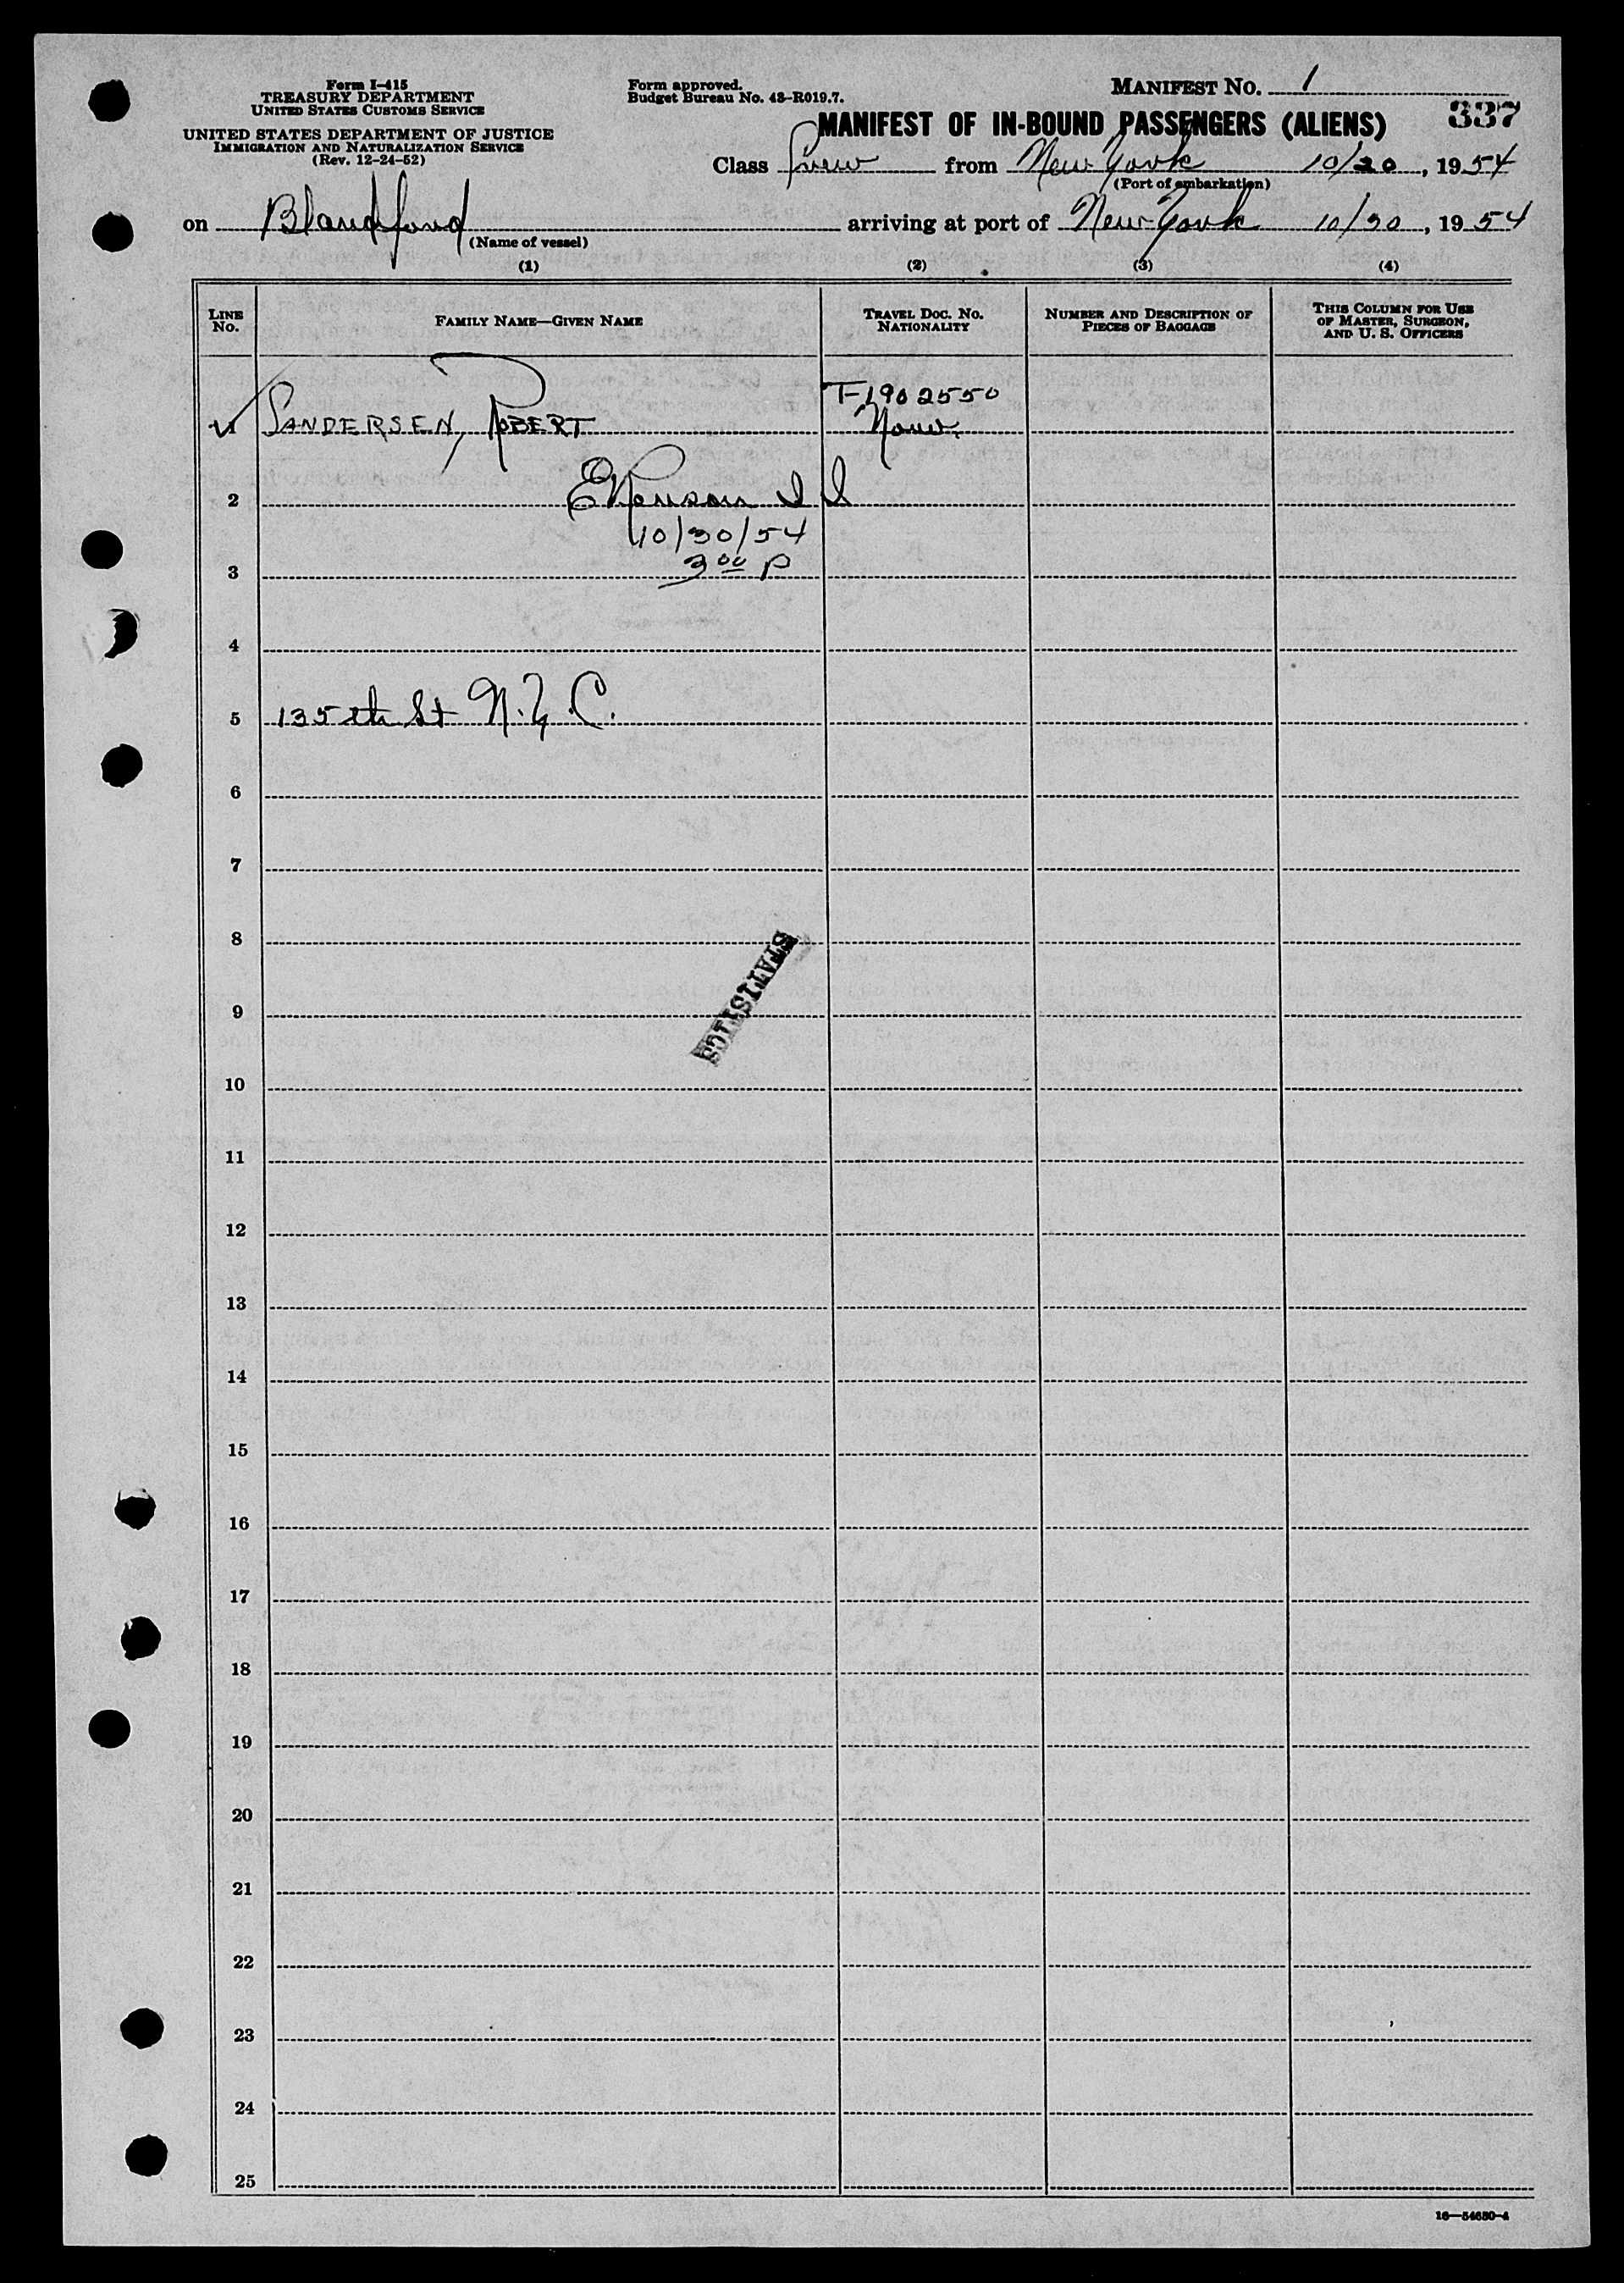 Form I-415
TREASURY DEPARTMENT
UNITED STATES CUSTOMS SERVICE
UNITED STATES DEPARTMENT OF JUSTICE
IMMIGRATION AND NATURALIZATION SERVICE
(Rev. 12-24-52)
Form approved.
Budget Bureau No. 43-R019.7.
MANIFEST NO. 1
337
MANIFEST OF IN-BOUND PASSENGERS (ALIENS)
Class Crew from New York 10/20, 1954
(Port of embarkation)
on Blandford arriving at port of New York 10/30, 1954
(Name of vessel)
(1) (2) (3) (4)
LINE NO. FAMILY NAME—GIVEN NAME TRAVEL DOC. NO. NATIONALITY NUMBER AND DESCRIPTION OF PIECES OF BAGGAGE THIS COLUMN FOR USE OF MASTER, SURGEON, AND U. S. OFFICERS
T-1902550
1 SANDERSEN, ROBERT Norw.
2
10/30/54
3 3 00 P
4
5 135 th St N.Y.C.
6
7
8
STATISTICS
9
10
11
12
13
14
15
16
17
18
19
20
21
22
23
24
25
16—54650-4